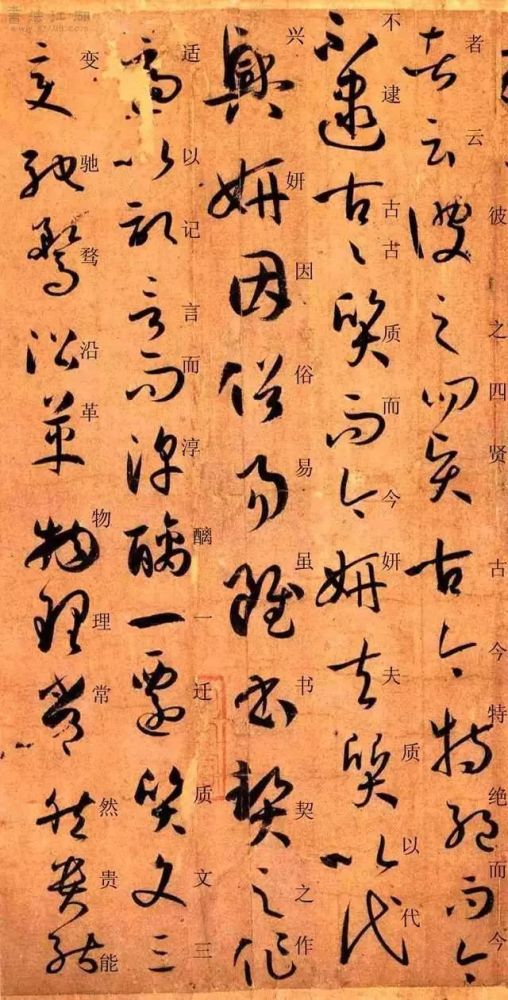 者云彼之四贤古今特绝而今
不逮古古质而今妍夫质以代
兴妍因俗易虽书契之作
适以记言而淳醨一迁质文三
变驰骛沿革物理常然贵能